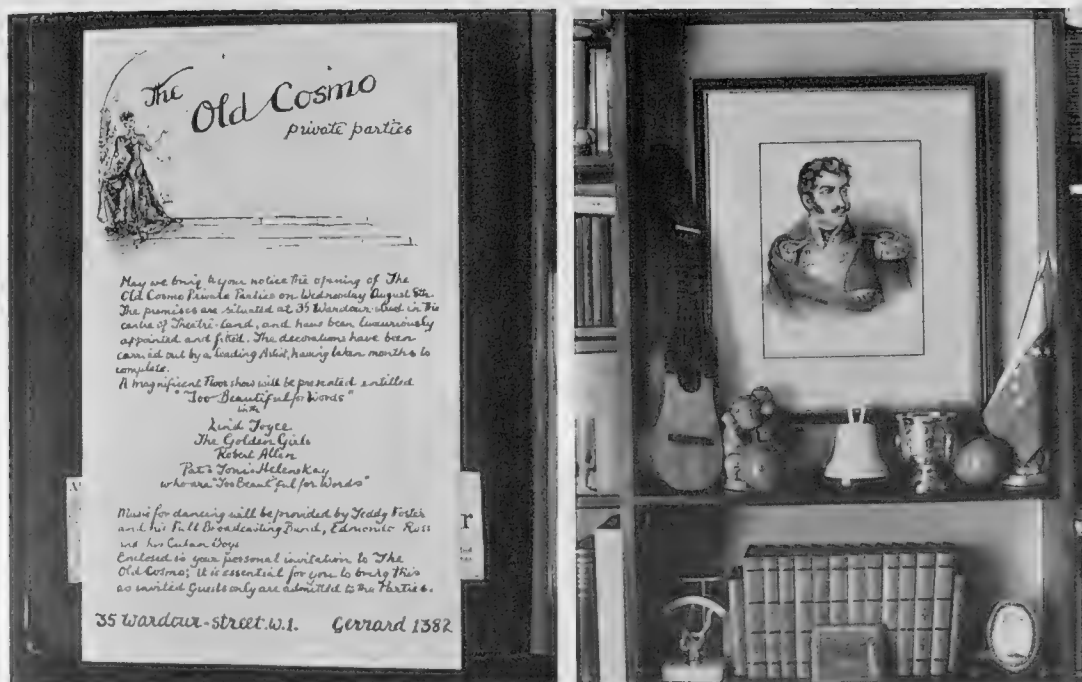 The
Old Cosmo
private parties
May we bring to your notice the opening of The
Old Cosmo Private Parties on Wednesday August 8th.
The premises are situated at 35 Wardour-street in the
centre of Theatre-Land, and have been luxuriously
appointed and fitted. The decorations have been
carried out by a leading Artist, having taken months to
complete.
A magnificent Floor show will be presented entitled
"Too Beautiful for Words"
with
Joyce
The Golden Girls
Robert Allen
Pat & Toni Helen Kay
who are "Too Beautiful for Words"
Music for dancing will be provided by Teddy Foster
and his Full Broadcasting Band, Edmundo Ross
and his Cuban Boys
Enclosed is your personal invitation to The
Old Cosmo; it is essential for you to bring this
as invited Guests only are admitted to the Parties.
35 Wardour-street. W.1. Gerrard 1382